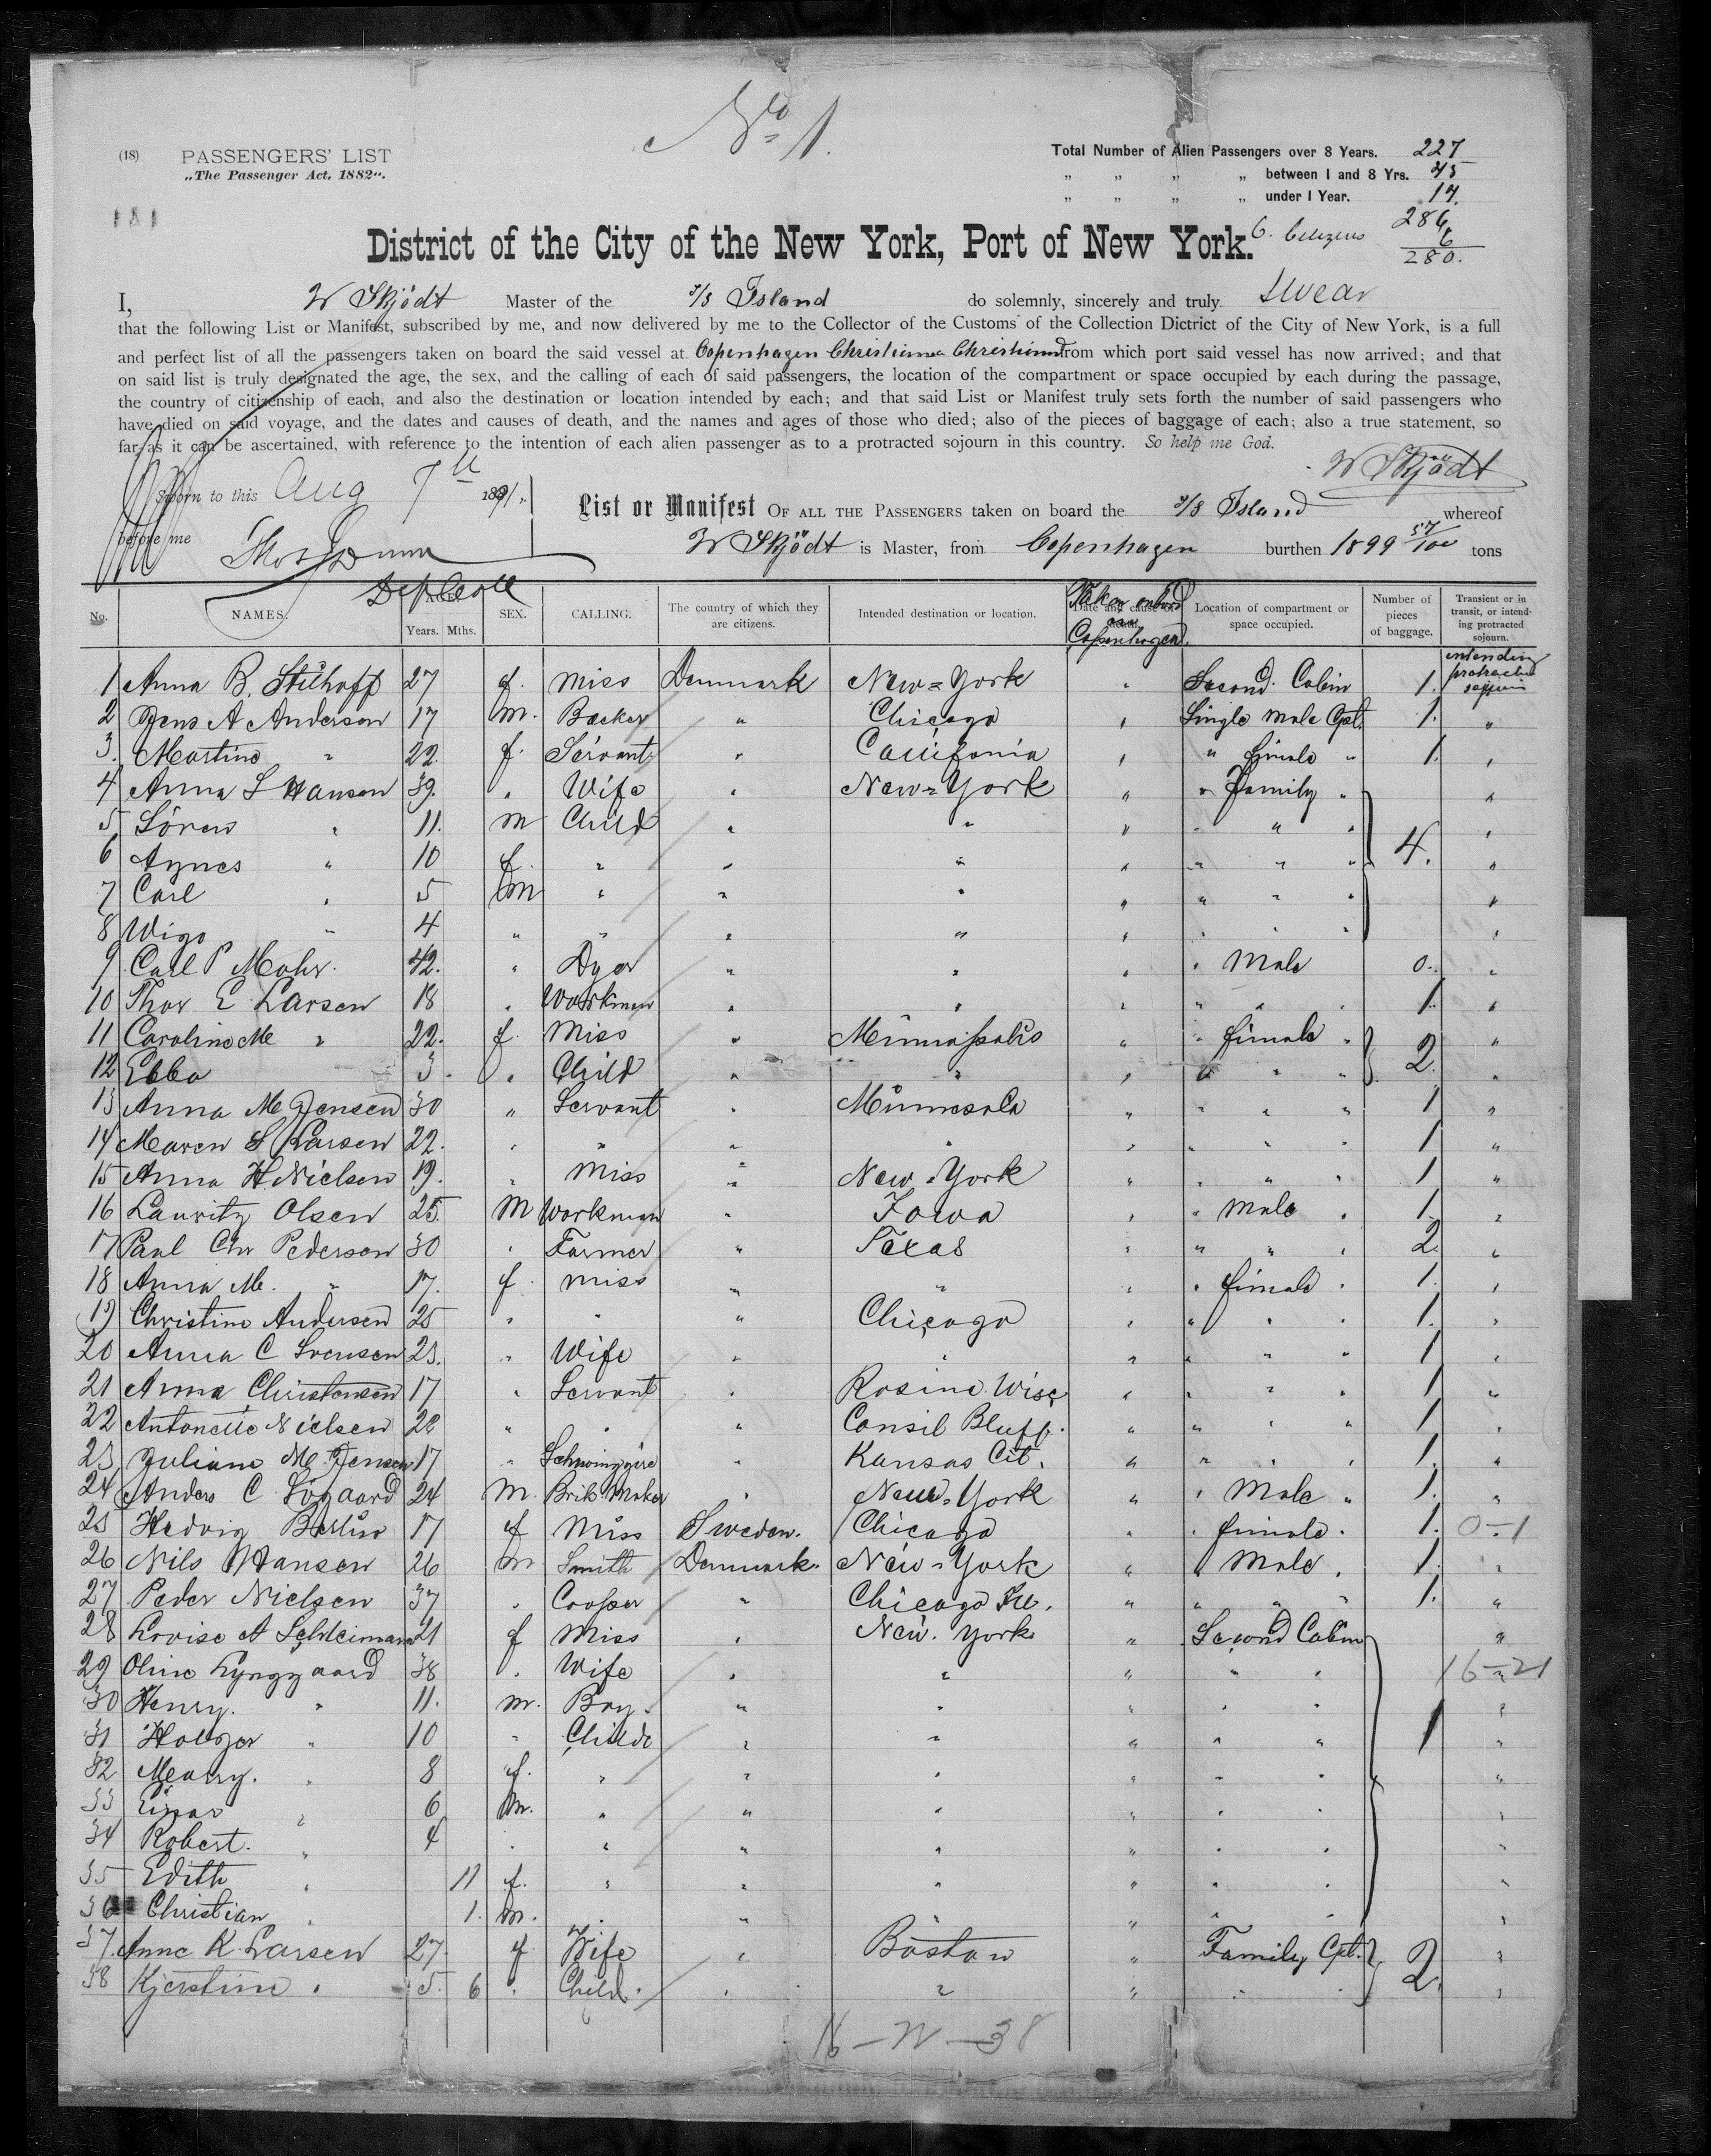 No 1.
(18) PASSENGERS' LIST
„The Passenger Act, 1882“.
Total Number of Alien Passengers over 8 Years. 227
„ „ „ „ between 1 and 8 Yrs. 45
„ „ „ „ under 1 Year. 14.
286
6
280.
District of the City of the New York, Port of New York.
I, W Skjödt Master of the S/S Island do solemnly, sincerely and truly swear
that the following List or Manifest, subscribed by me, and now delivered by me to the Collector of the Customs of the Collection Dictrict of the City of New York, is a full
and perfect list of all the passengers taken on board the said vessel at Copenhagen Christiania from which port said vessel has now arrived; and that
on said list is truly designated the age, the sex, and the calling of each of said passengers, the location of the compartment or space occupied by each during the passage,
the country of citizenship of each, and also the destination or location intended by each; and that said List or Manifest truly sets forth the number of said passengers who
have died on said voyage, and the dates and causes of death, and the names and ages of those who died; also of the pieces of baggage of each; also a true statement, so
far as it can be ascertained, with reference to the intention of each alien passenger as to a protracted sojourn in this country. So help me God.
W Skjödt
Sworn to this Aug 7th 1891.
before me
List or Manifest OF ALL THE PASSENGERS taken on board the S/S Island whereof
W Skjödt is Master, from Copenhagen burthen 1899 57/100 tons
No. NAMES. AGE. Years. Mths. SEX. CALLING. The country of which they are citizens. Intended destination or location. Date and cause of death. Location of compartment or space occupied. Number of pieces of baggage. Transient or in transit, or intending protracted sojourn.
Taken onboard
Copenhagen.
1 Anna B. Stilhoff 27 f. Miss Denmark New=York " Second Cabin 1. intending protracted sojourn
2 Jens A Anderson 17 m. Backer " Chicago " Single Male Cpt. 1. "
3. Martine " 22. f. Servant " " " " 1. "
4 Anna S Hansen 39. " Wife " New=York " " Family " "
5 Sören " 11. m Child " " " " " " "
6 Agnes " 10 f. " " " " " " " 4. "
7 Carl " 5 m " " " " " " " "
8 Wigo " 4 " " " " " " " " "
9 Carl P Mohr 42. " Dyer " " " " Male 0. "
10 Thor E Larsen 18 " Workman " " " " " " 1. "
11 Caroline M " 22. f. Miss " " " " 2. "
12 Ebba 3 " Child " " " " " " "
13 Anna M Jensen 30 " Servant " " " " " 1 "
14 Maren S Larsen 22. " " " " " " " " 1 "
15 Anna H Nielsen 19. " Miss " New=York " " " " 1 "
16 Lauritz Olsen 25. M Workman " Iowa " " Male " 1. "
17 Paul Chr Pederson 30 " Farmer " Texas " " " " 2. "
18 Anna M. " 17. f. Miss " " " " " 1. "
19 Christine Andersen 25 " " " Chicago " " " " 1. "
20 Anna C Svensen 23. " Wife " " " " " " 1 "
21 Anna Christensen 17 " Servant " Rosine Wisc " " " " 1 "
22 Nielsen " " " Consil Bluff. " " " " 1 "
23 Juliane M. Jensen 17 " " Kansas Cit. " " " " 1. "
24 Anders C Sögaard 24 M. Brik Maker " New=York " " Male " 1. "
25 Hedvig 17 f Miss Sweden. Chicago " " " 1. 0-1
26 Nils Hansen 26 m Smith Denmark. New=York " " Male. 1. "
27 Peder Nielsen 37 " Cooper " Chicago Ill. " " " " 1. "
28 Lovise A Schleimann 21 f Miss " New York " Second Cabin "
29 Oline Lynggaard 38 " Wife " " " " " 16-21
30 Henry. " 11. m. Boy. " " " " " "
31 Holger " 10 " Childe " " " " " 1 "
32 Meary. " 8 f. " " " " " " "
33 Einar " 6 m. " " " " " " "
34 Robert. " 4 " " " " " " " "
35 Edith " 11 f. " " " " " " "
36 Christian " 1. m. " " " " " " "
37. Anne K. Larsen 27 f. Wife " Boston " Family Cpt. 2. "
38 Kjerstine " 5. 6 " Child. " " " " " "
16-W-38